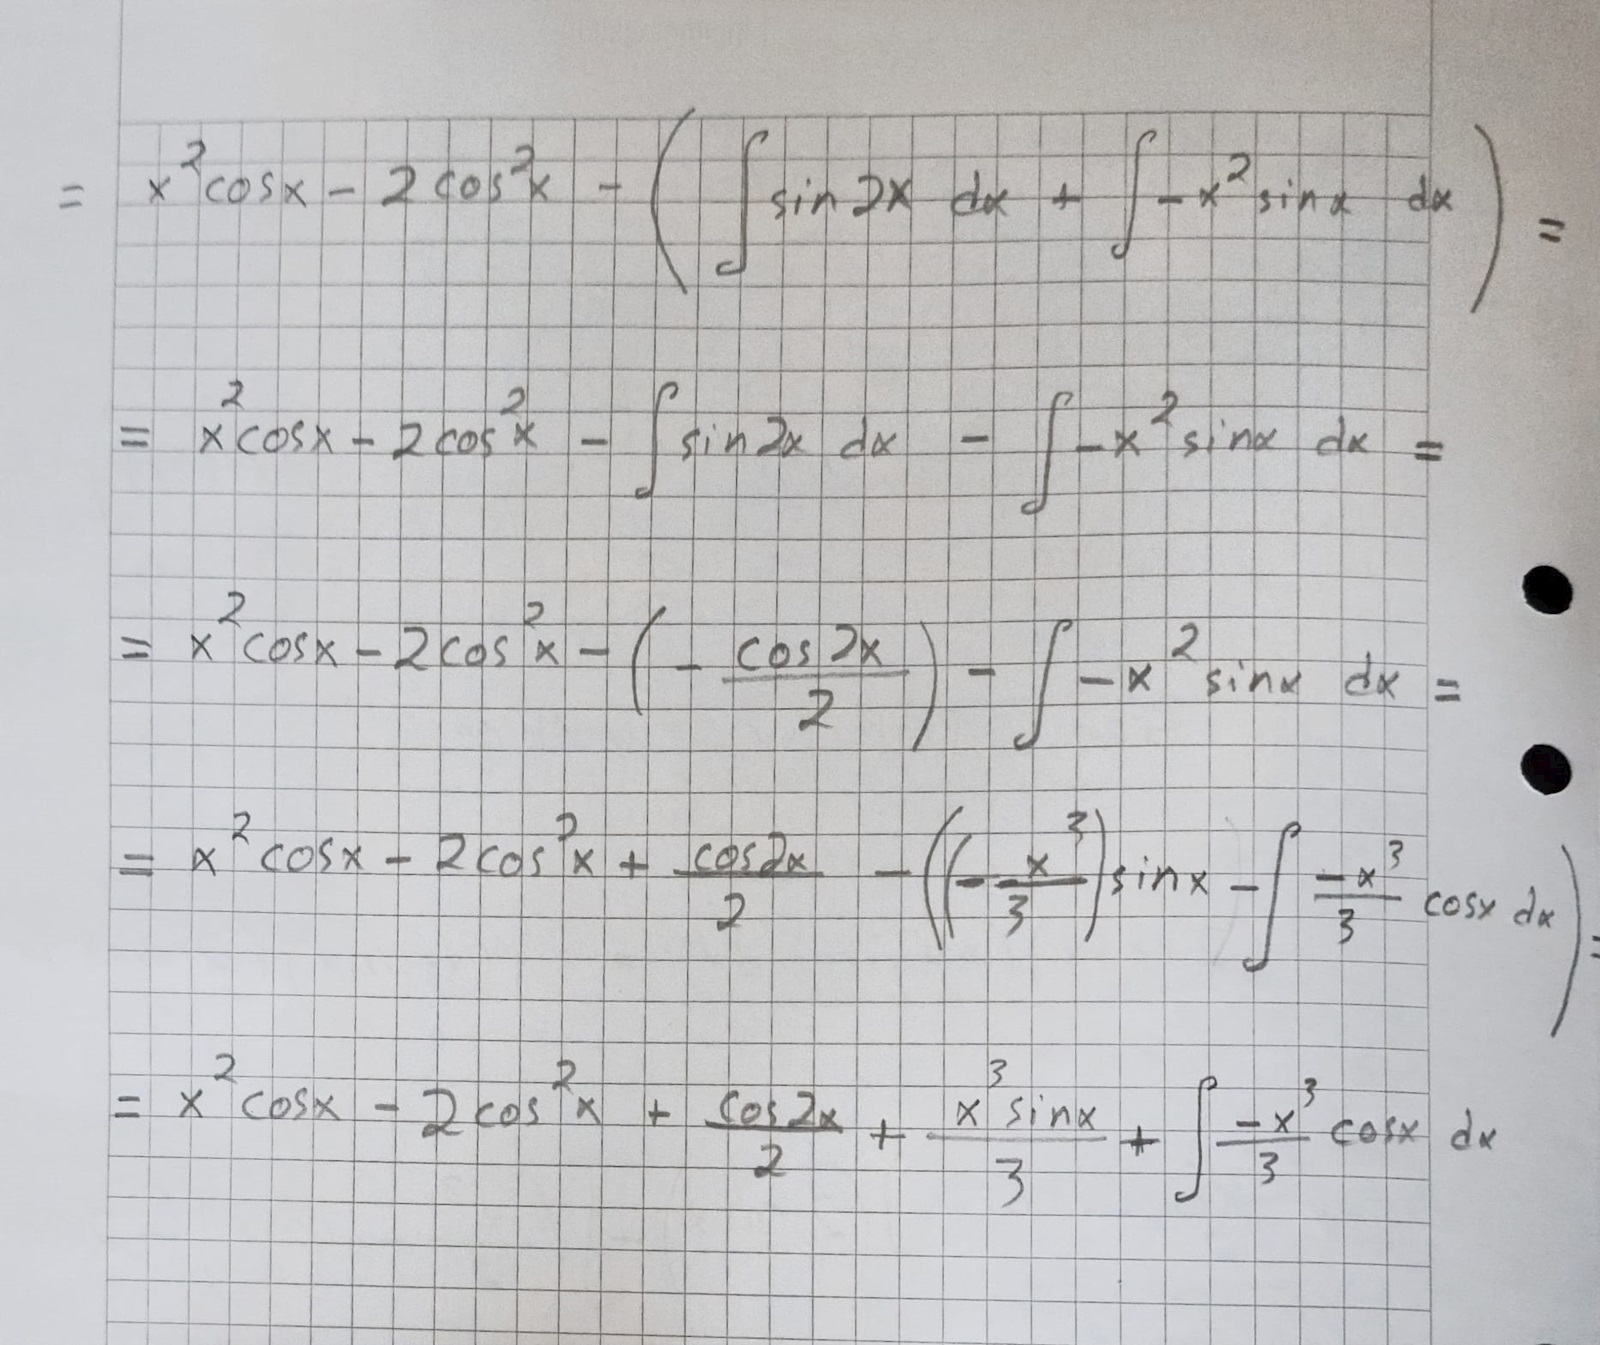 = x²cosx - 2cos²x - (∫sin2x dx + ∫-x²sinx dx) =
= x²cosx - 2cos²x - ∫sin2x dx - ∫-x²sinx dx =
= x²cosx - 2cos²x - (-cos2x/2) - ∫-x²sinx dx =
= x²cosx - 2cos²x + cos2x/2 - ((-x³/3)sinx - ∫-x³/3 cosx dx) =
= x²cosx - 2cos²x + cos2x/2 + x³sinx/3 + ∫-x³/3 cosx dx